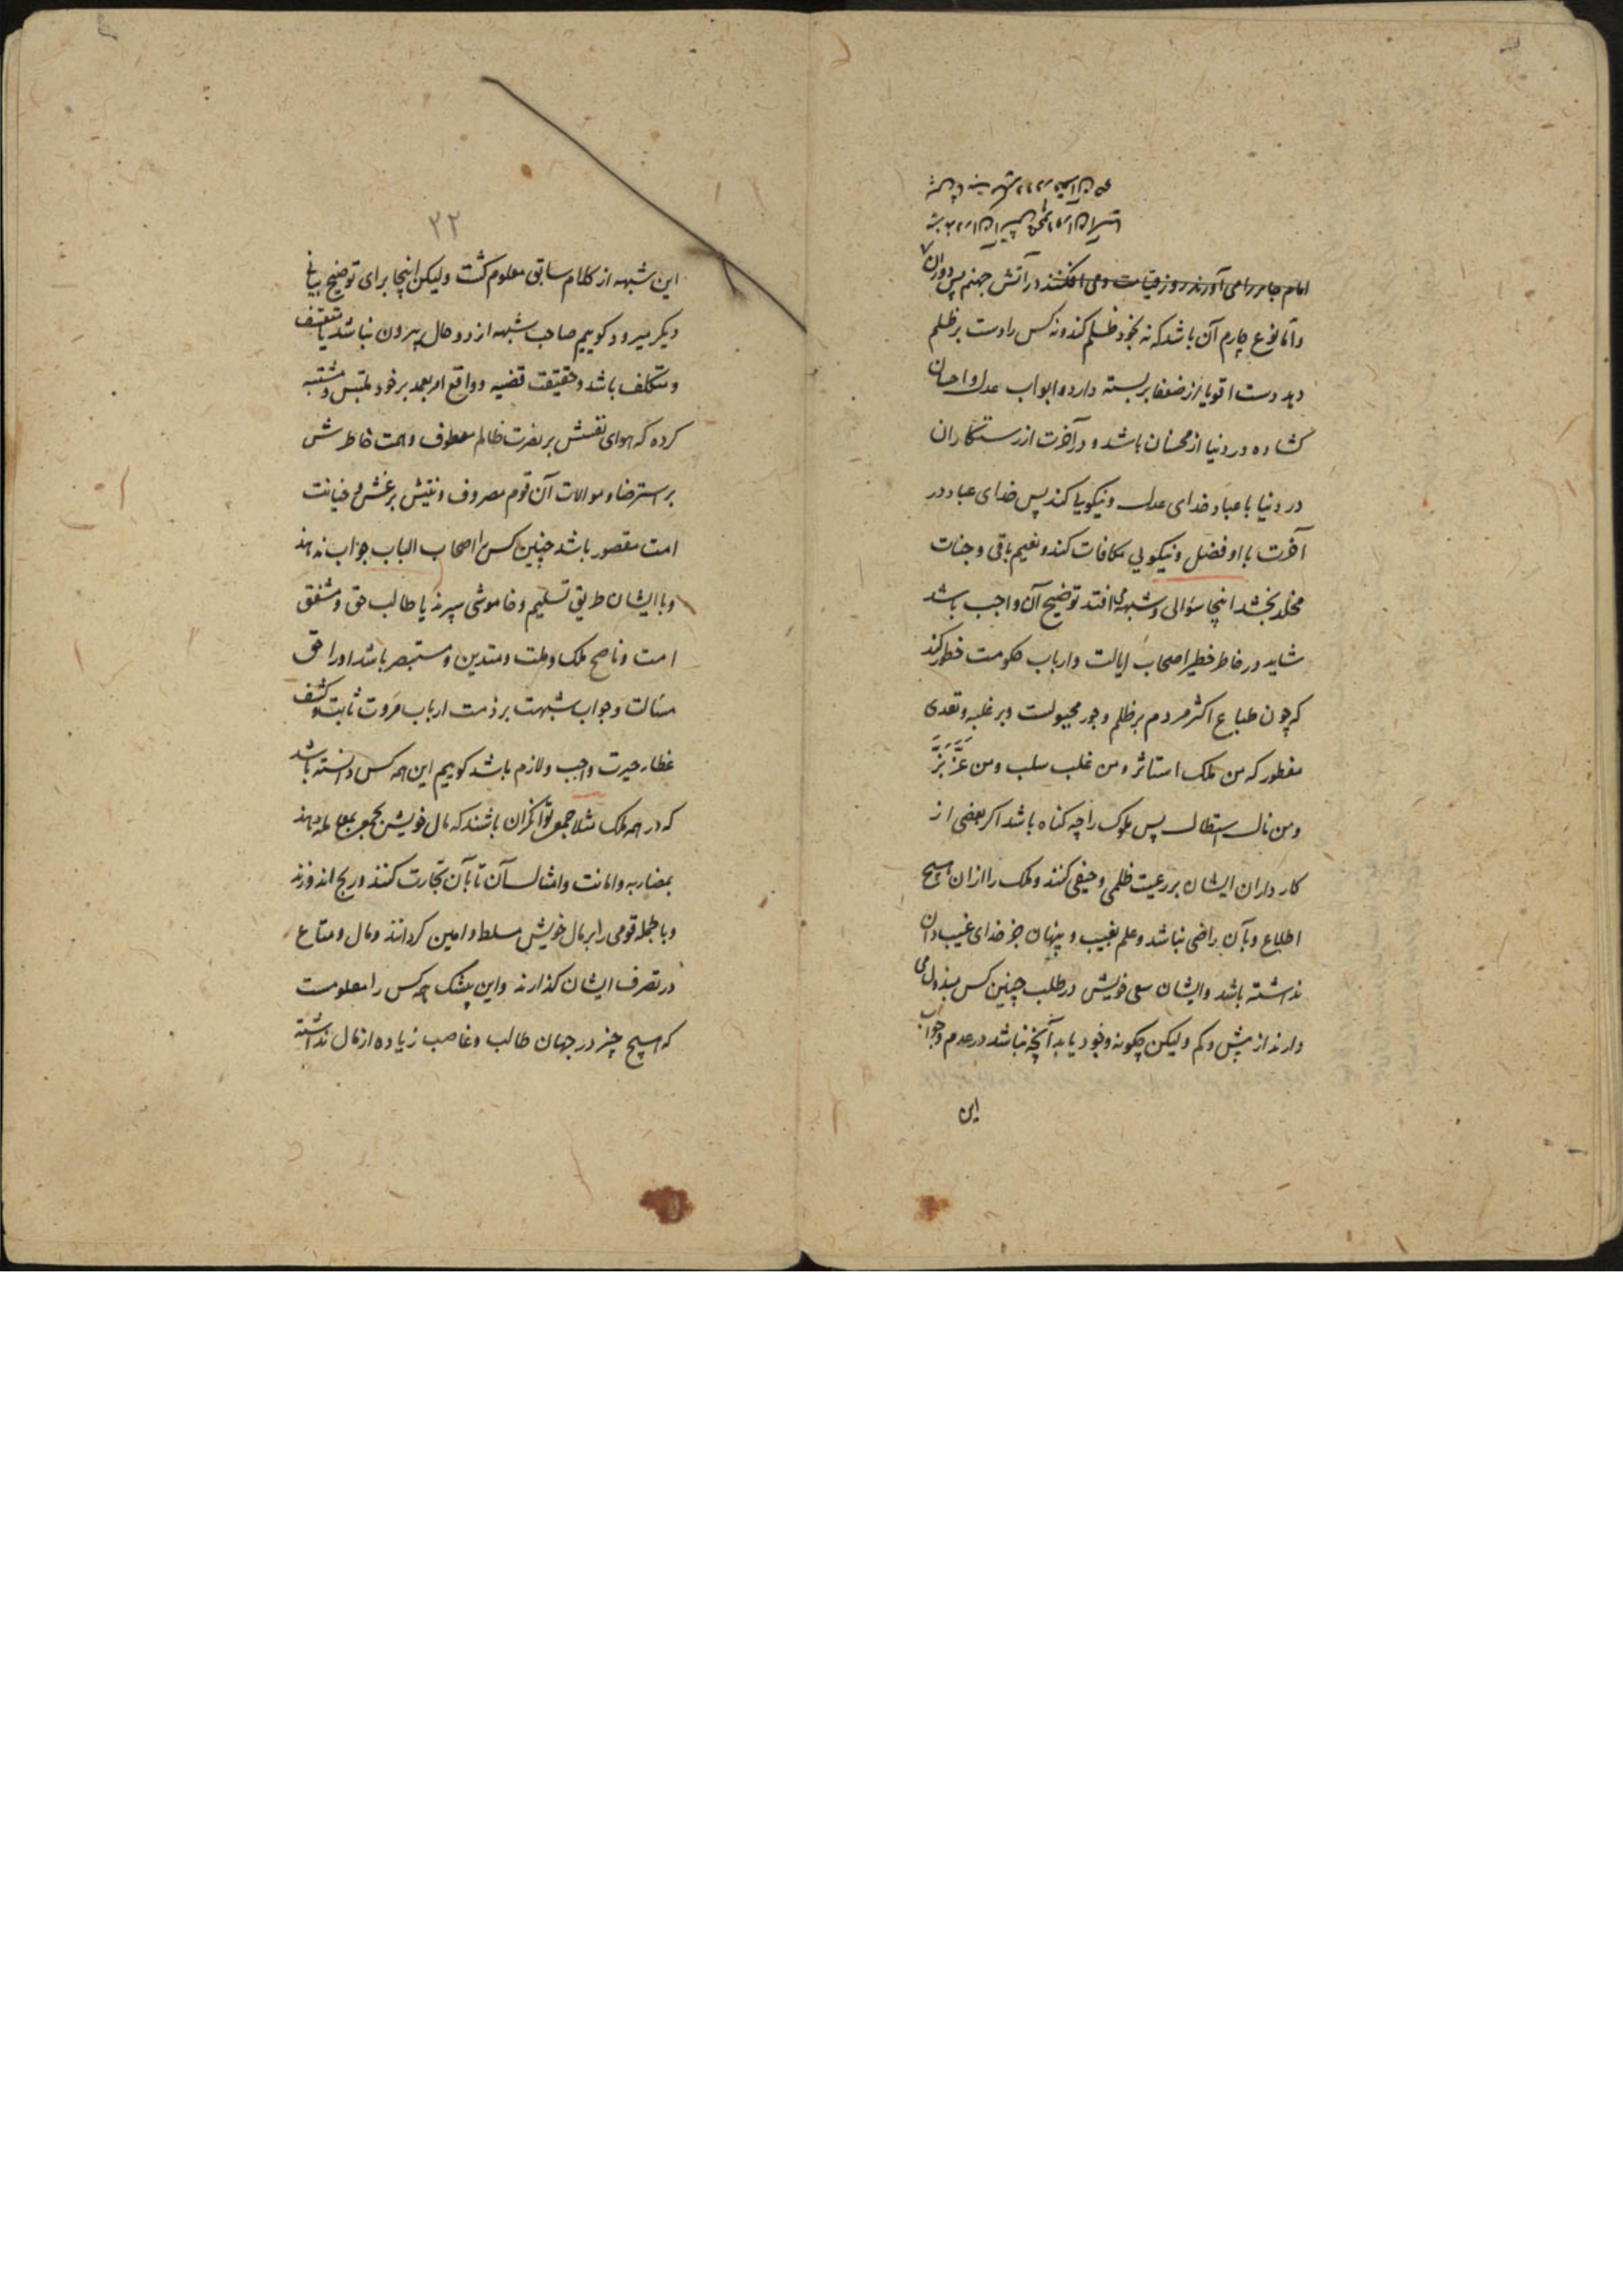 امام جابر را می آورند روز قیامت و می افکنند در آتش جهنم پس دوران
و اما نوع چارم آن باشد که نه بخود ظلم کند و نه کس را دست بر ظلم
دهد دست اقویا از ضعفا بر بسته دارد و ابواب عدل و احسان
کشاده در دنیا از محسنان باشد و در آخرت از رستکاران
در دنیا با عباد خدای عدل و نیکویی کند پس خدای عباد در
آخرت با او فضل و نیکویی مکافات کند و نعیم باقی و جنات
مخلد بخشد اینجا سؤالی و شبهه می افتد توضیح آن واجب باشد
شاید در خاطر خطیر اصحاب ایالت و ارباب حکومت خطور کند
که چون طباع اکثر مردم بر ظلم و جور مجبولست و بر غلبه و تعدی
مفطور که من ملک استاثر و من غلب سلب و من عَزَّ بَزَّ
و من نال استطال پس ملوک را چه کناه باشد اکر بعضی از
کار داران ایشان بر رعیت ظلمی و حیفی کنند و ملک را از ان هیچ
اطلاع و بآن راضی نباشد و علم بغیب و پنهان جز خدای غیب دان
نداشته باشد و ایشان سعی خویش در طلب چنین کس مبذول می
دارند از بیش و کم و لیکن چکونه وجود یابد آنچه نباشد در عدم و جواب
این
۳۲
این شبهه از کلام سابق معلوم کشت و لیکن اینجا برای توضیح بیانی
دیکر میرود کوییم صاحب شبهه از دو حال بیرون نباشد یا متعسف
و متکلف باشد و حقیقت قضیه و واقع امر بعمد بر خود ملتبس و مشتبه
کرده که هوای نفسش بر نصرت ظالم معطوف و همت خاطرش
بر استرضا و موالات آن قوم مصروف و نیتش بر غش و خیانت
امت مقصور باشد چنین کس را اصحاب الباب جواب ندهند
و با ایشان طریق تسلیم و خاموشی سپرند یا طالب حق و مشفق
امت و ناصح ملک و ملت و متدین و مستبصر باشد او را حق
مسالت و جواب شبهت بر ذمت ارباب مروت ثابت و کشف
غطاء حیرت واجب و لازم باشد کوییم این همه کس دانسته باشد
که در همه ملک مثلا جمع توانکران باشند که مال خویش بجمع بمعامله دهند
بمضاربه و امانت و امثال آن تا بآن تجارت کنند و ربح اندوزند
و بالجمله قومی را بر مال خویش مسلط و امین کردانند و مال و متاع
در تصرف ایشان کذارند و این بیشک هر کس را معلومست
که هیچ چیز در جهان طالب و غاصب زیاده از مال نداشته